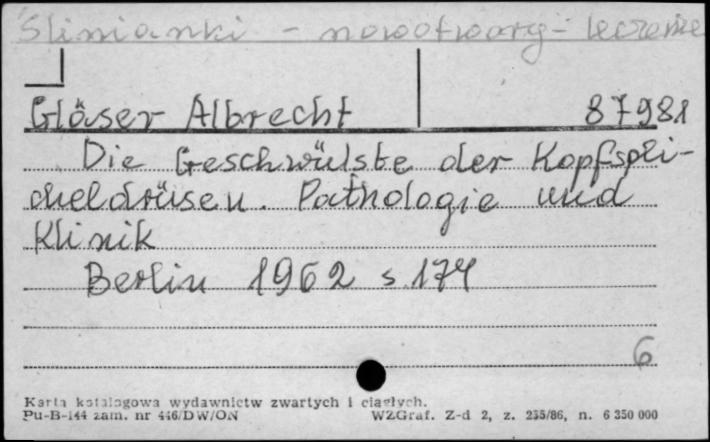 Ślinianki - nowotwory - leczenie
Gläser Albrecht 87981
Die Geschwülste der Kopfspei-
cheldrüsen. Pathologie und
Klinik
Berlin 1962 s. 174
6
Karta katalogowa wydawnictw zwartych i ciągłych.
Pu-B-144 zam. nr 446/DW/ON WZGraf. Z-d 2, z. 235/86, n. 6 350 000